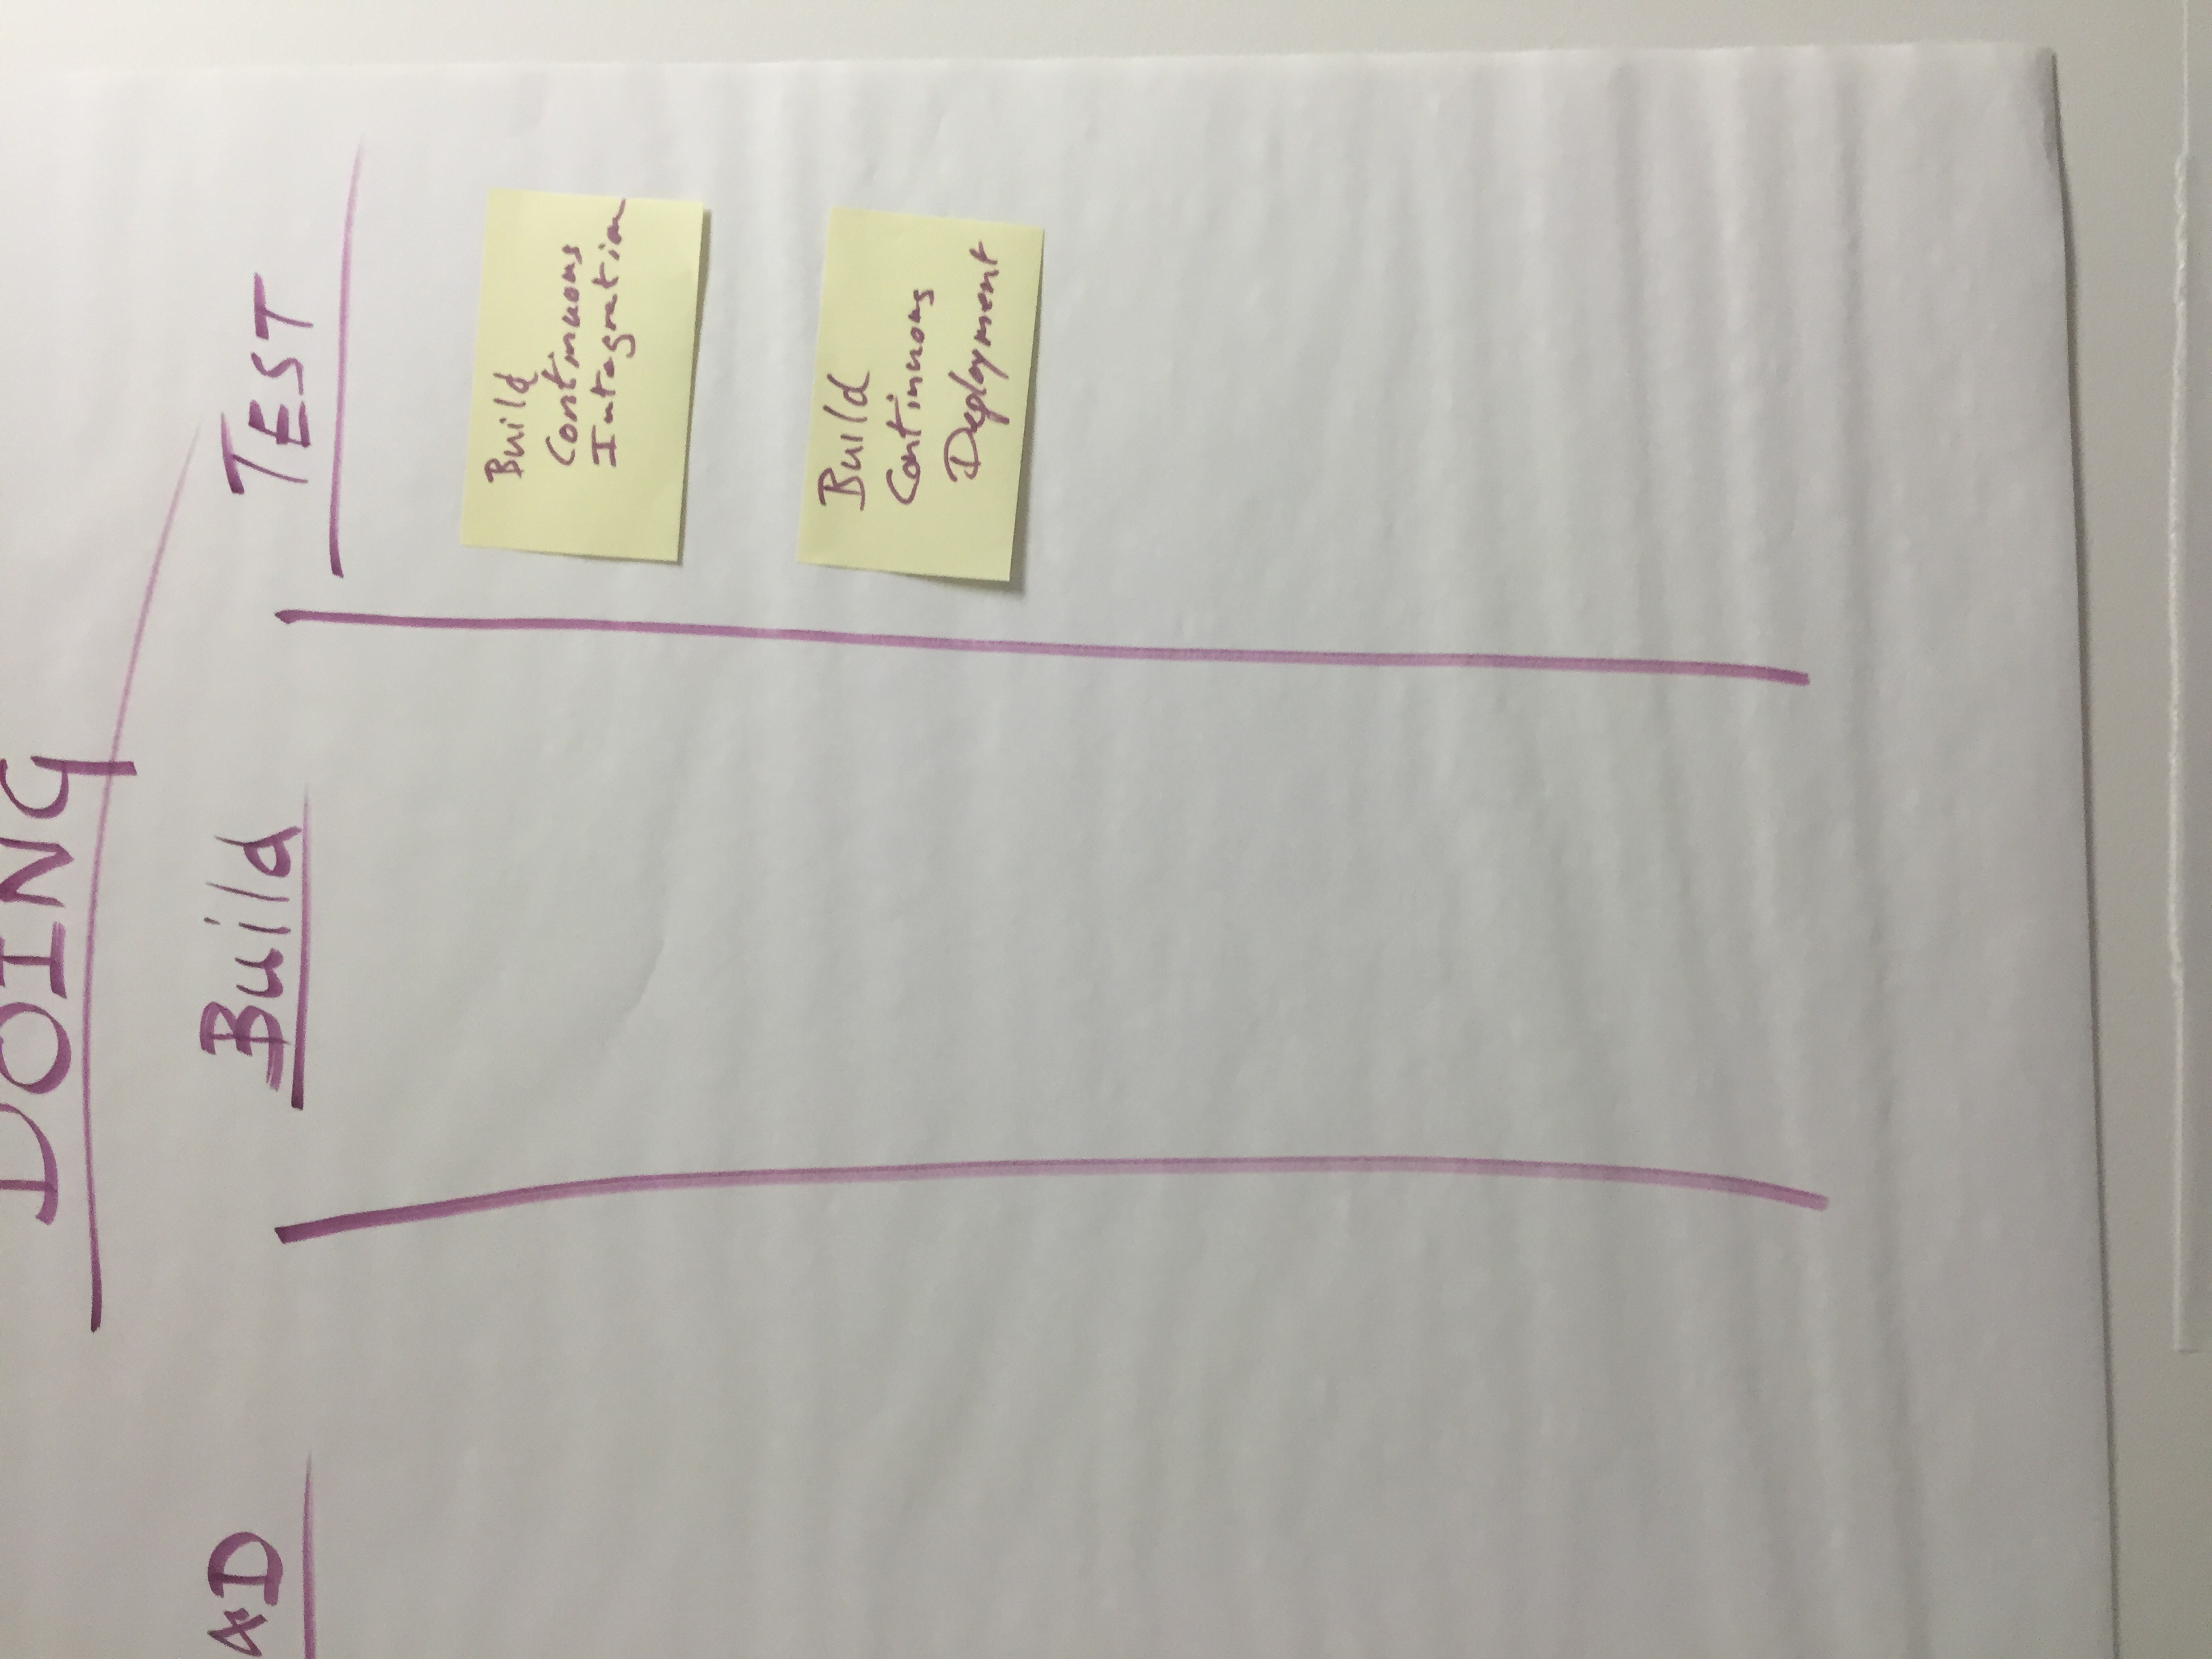 DOING
&D
Build
TEST
Build
Continuous
Integration
Build
Continuous
Deployment